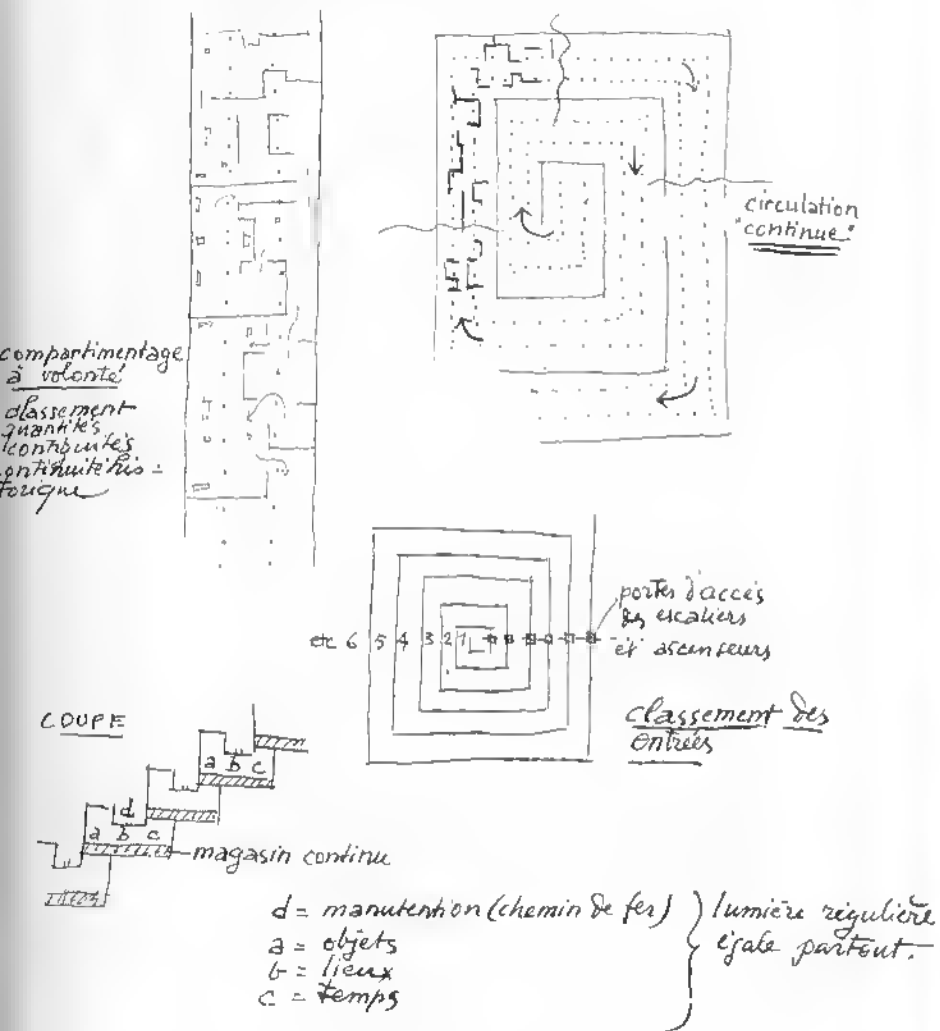 circulation
"continue"
compartimentage
à volonté
classement
quantités
contiguités
continuité his-
torique
etc 6 5 4 3 2 1
portes d'accès
des escaliers
et ascenseurs
classement des
entrées
COUPE
a b c
d
a b c
magasin continu
d = manutention (chemin de fer)
a = objets
b = lieux
c = temps
lumière régulière
égale partout.